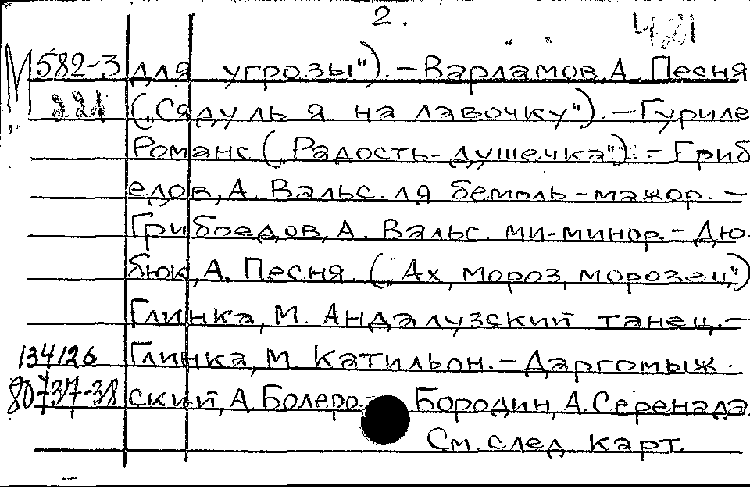 2.
М 582-3 для угрозы"). – Варламов, А. Песня
(„Сяду ль я на лавочку"). – Гуриле
Романс („Радость-душечка"). – Гриб
едов, А. Вальс. ля бемоль-мажор. –
Грибоедов, А. Вальс. ми-минор. – Дю-
бюк, А. Песня. („Ах, мороз, морозец")
Глинка, М. Андалузский танец. –
134126 Глинка, М. Катильон. – Даргомыж
80737-38 ский, А. Болеро. – Бородин, А. Серенада
См. след. карт.